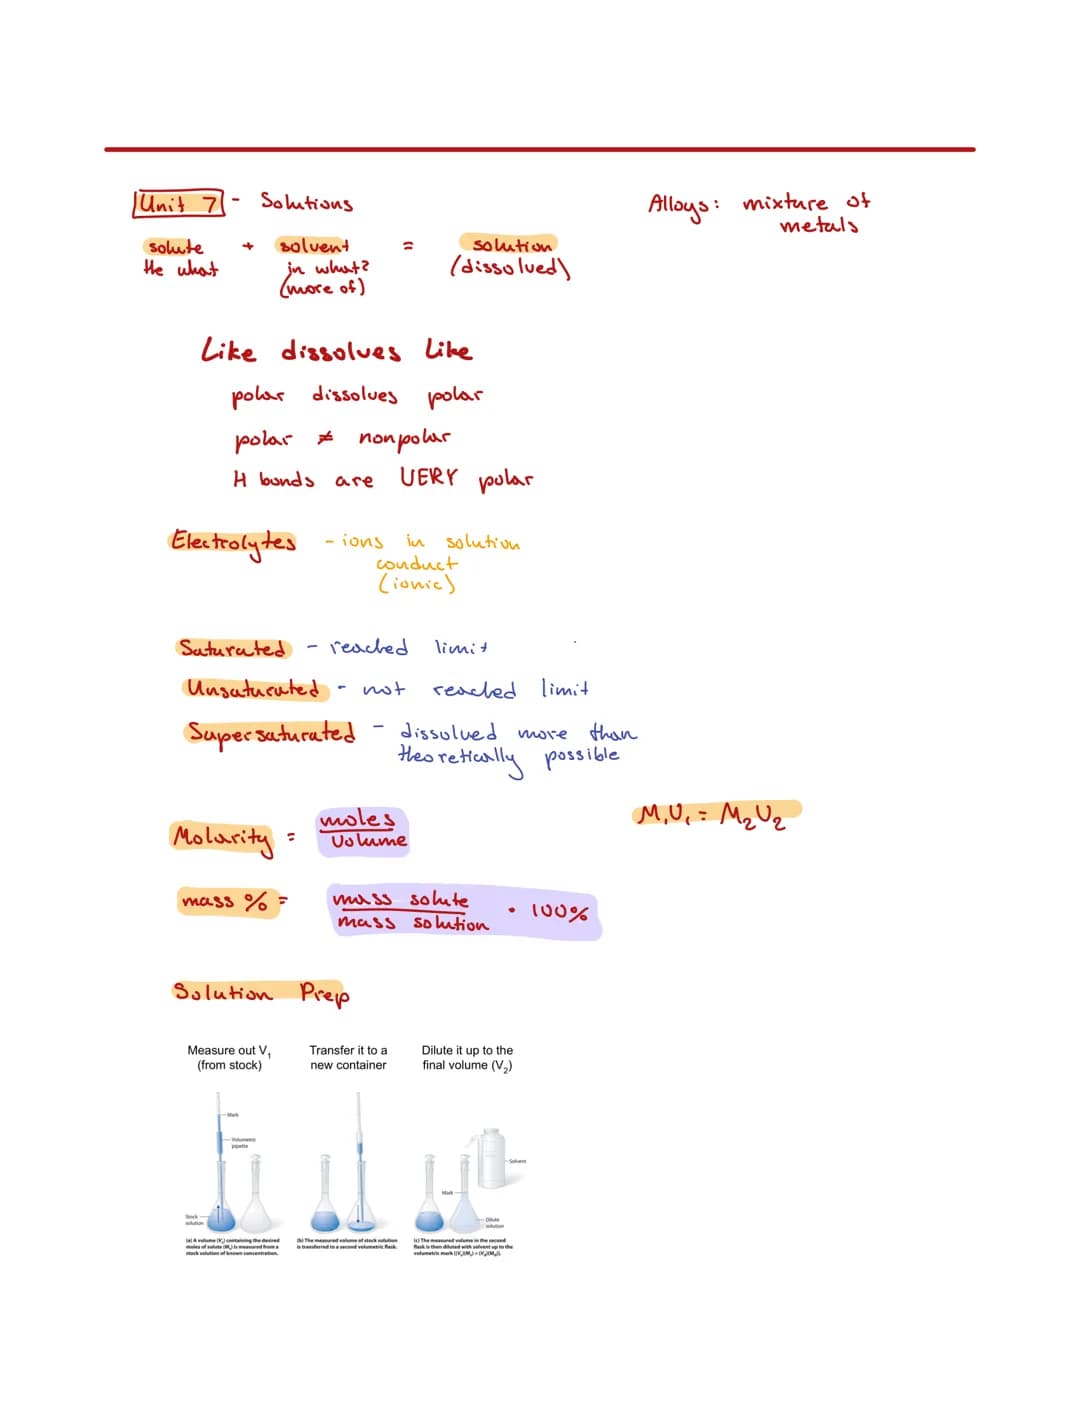 Unit 7 - Solutions
Alloys: mixture of
metals
solute + solvent = solution
the what in what? (dissolved)
(more of)
Like dissolves like
polar dissolves polar
polar ≠ nonpolar
H bonds are VERY polar
Electrolytes - ions in solution
conduct
(ionic)
Saturated - reached limit
Unsaturated - not reached limit
Supersaturated - dissolved more than
theoretically possible
Molarity = moles
Volume
M₁V₁ = M₂V₂
mass % = mass solute
mass solution • 100%
Solution Prep
Measure out V₁
(from stock)
Transfer it to a
new container
Dilute it up to the
final volume (V₂)
Mark
Volumetric
pipette
Stock
solution
Mark
Solvent
Dilute
solution
(a) A volume (Vₛ) containing the desired
moles of solute (Mₛ) is measured from a
stock solution of known concentration.
(b) The measured volume of stock solution
is transferred to a second volumetric flask.
(c) The measured volume in the second
flask is then diluted with solvent up to the
volumetric mark [(Vₛ)(Mₛ) = (V𝒹)(M𝒹)].